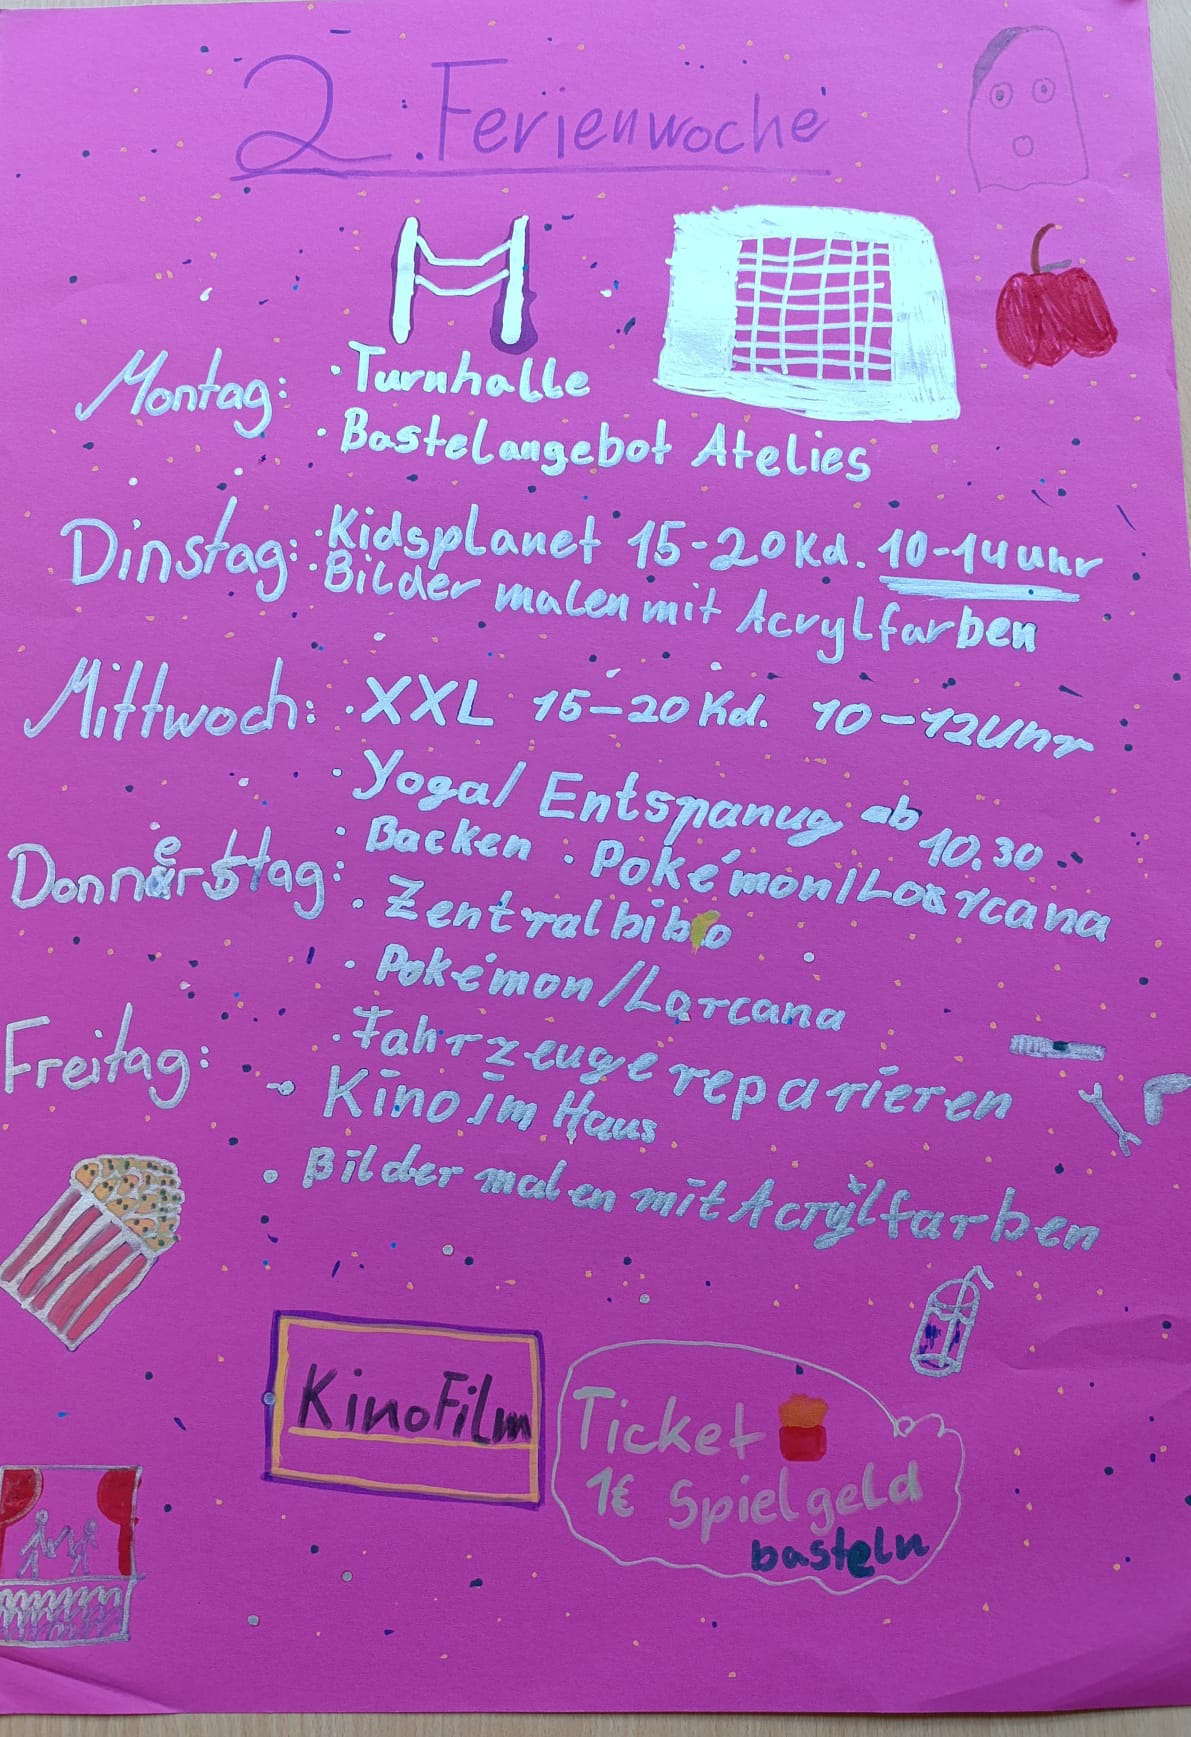 2. Ferienwoche
Montag: · Turnhalle
· Bastelangebot Atelies
Dinstag: · Kidsplanet 15-20 Kd. 10-14 Uhr
· Bilder malen mit Acrylfarben
Mittwoch: · XXL 15-20 Kd. 10-12 Uhr
· Yoga/Entspanug ab 10.30
· Backen · Pokémon/Lorcana
Donnerstag: · Zentralbibo
· Pokémon/Lorcana
Freitag: · Fahrzeuge reparieren
· Kino im Haus
· Bilder malen mit Acrylfarben
KinoFilm
Ticket
1€ Spielgeld
basteln